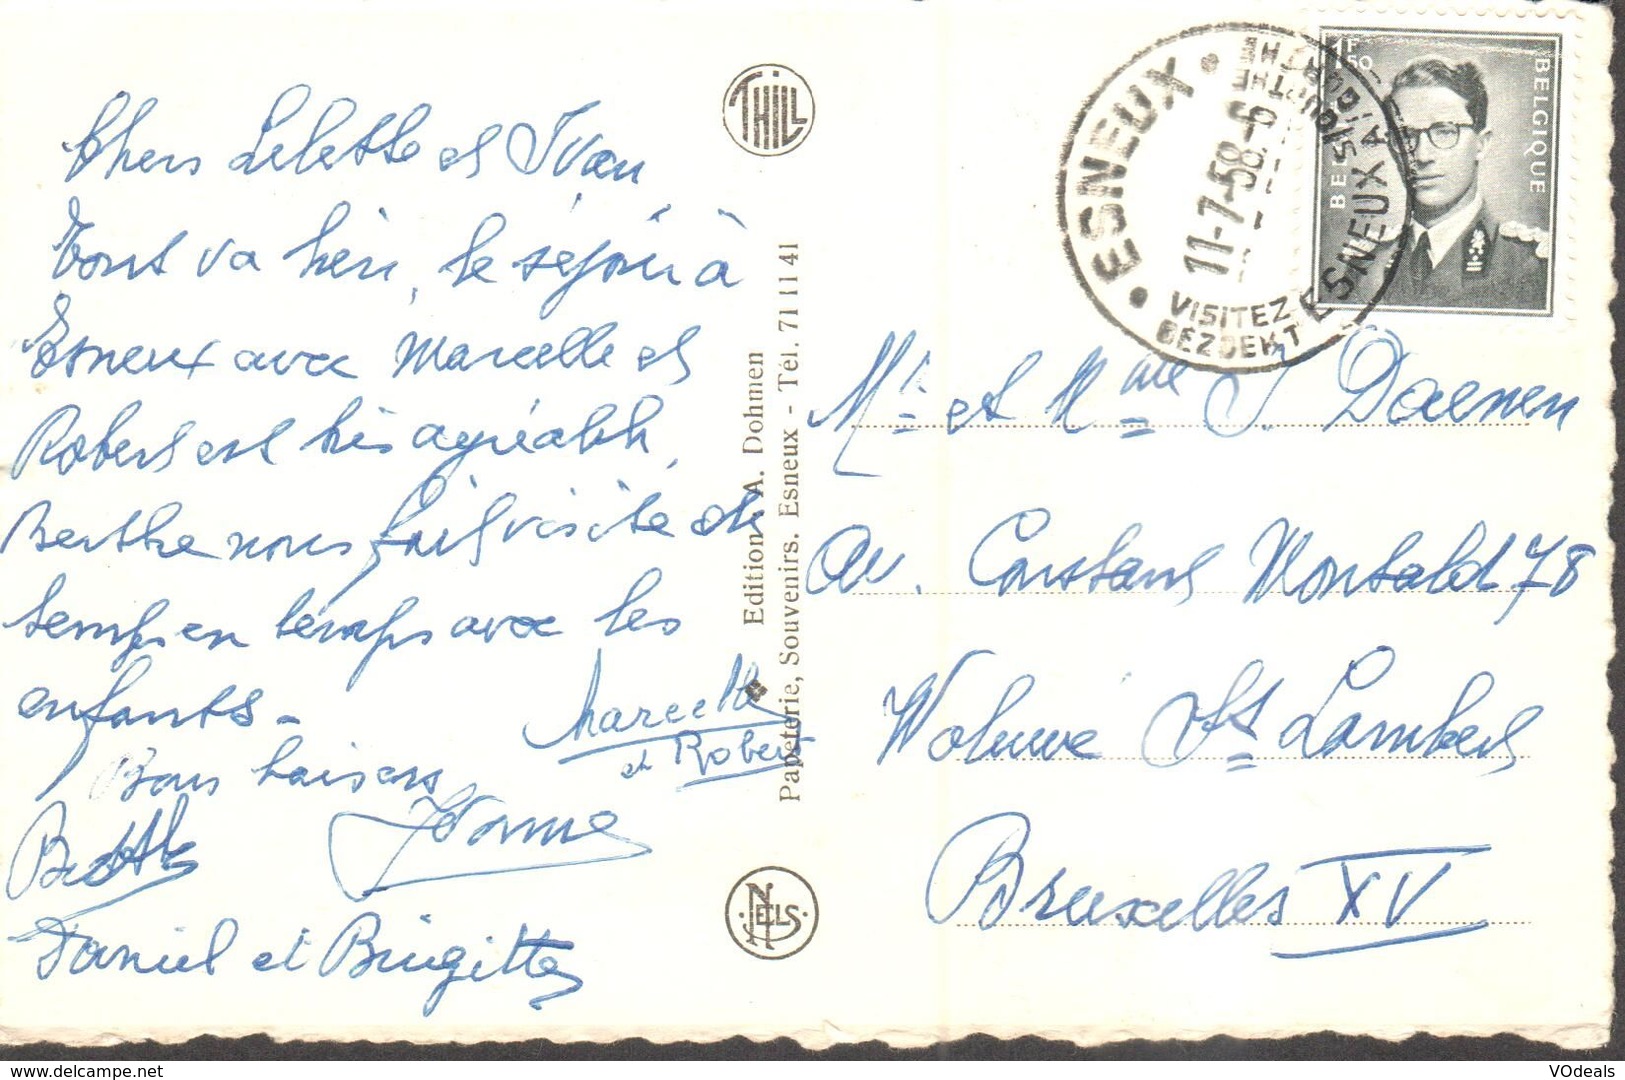 Chers Lilette et Ivan
Tout va bien, le séjour à
Esneux avec Marcelle et
Robert est très agréable,
Berthe nous fait visite de
temps en temps avec les
enfants -
Bons baisers
Marcelle
et Robert
Yvonne
Daniel et Brigitte
THILL
Edition A. Dohmen
Papeterie, Souvenirs. Esneux - Tél. 71 11 41
NELS
ESNEUX
11-7-58
VISITEZ ESNEUX
BEZOEKT
1F50
BELGIQUE
Mr et Mme J. Daenen
Av. Constant Montald 78
Woluwé St Lambert
Bruxelles XV
VOdeals
www.delcampe.net